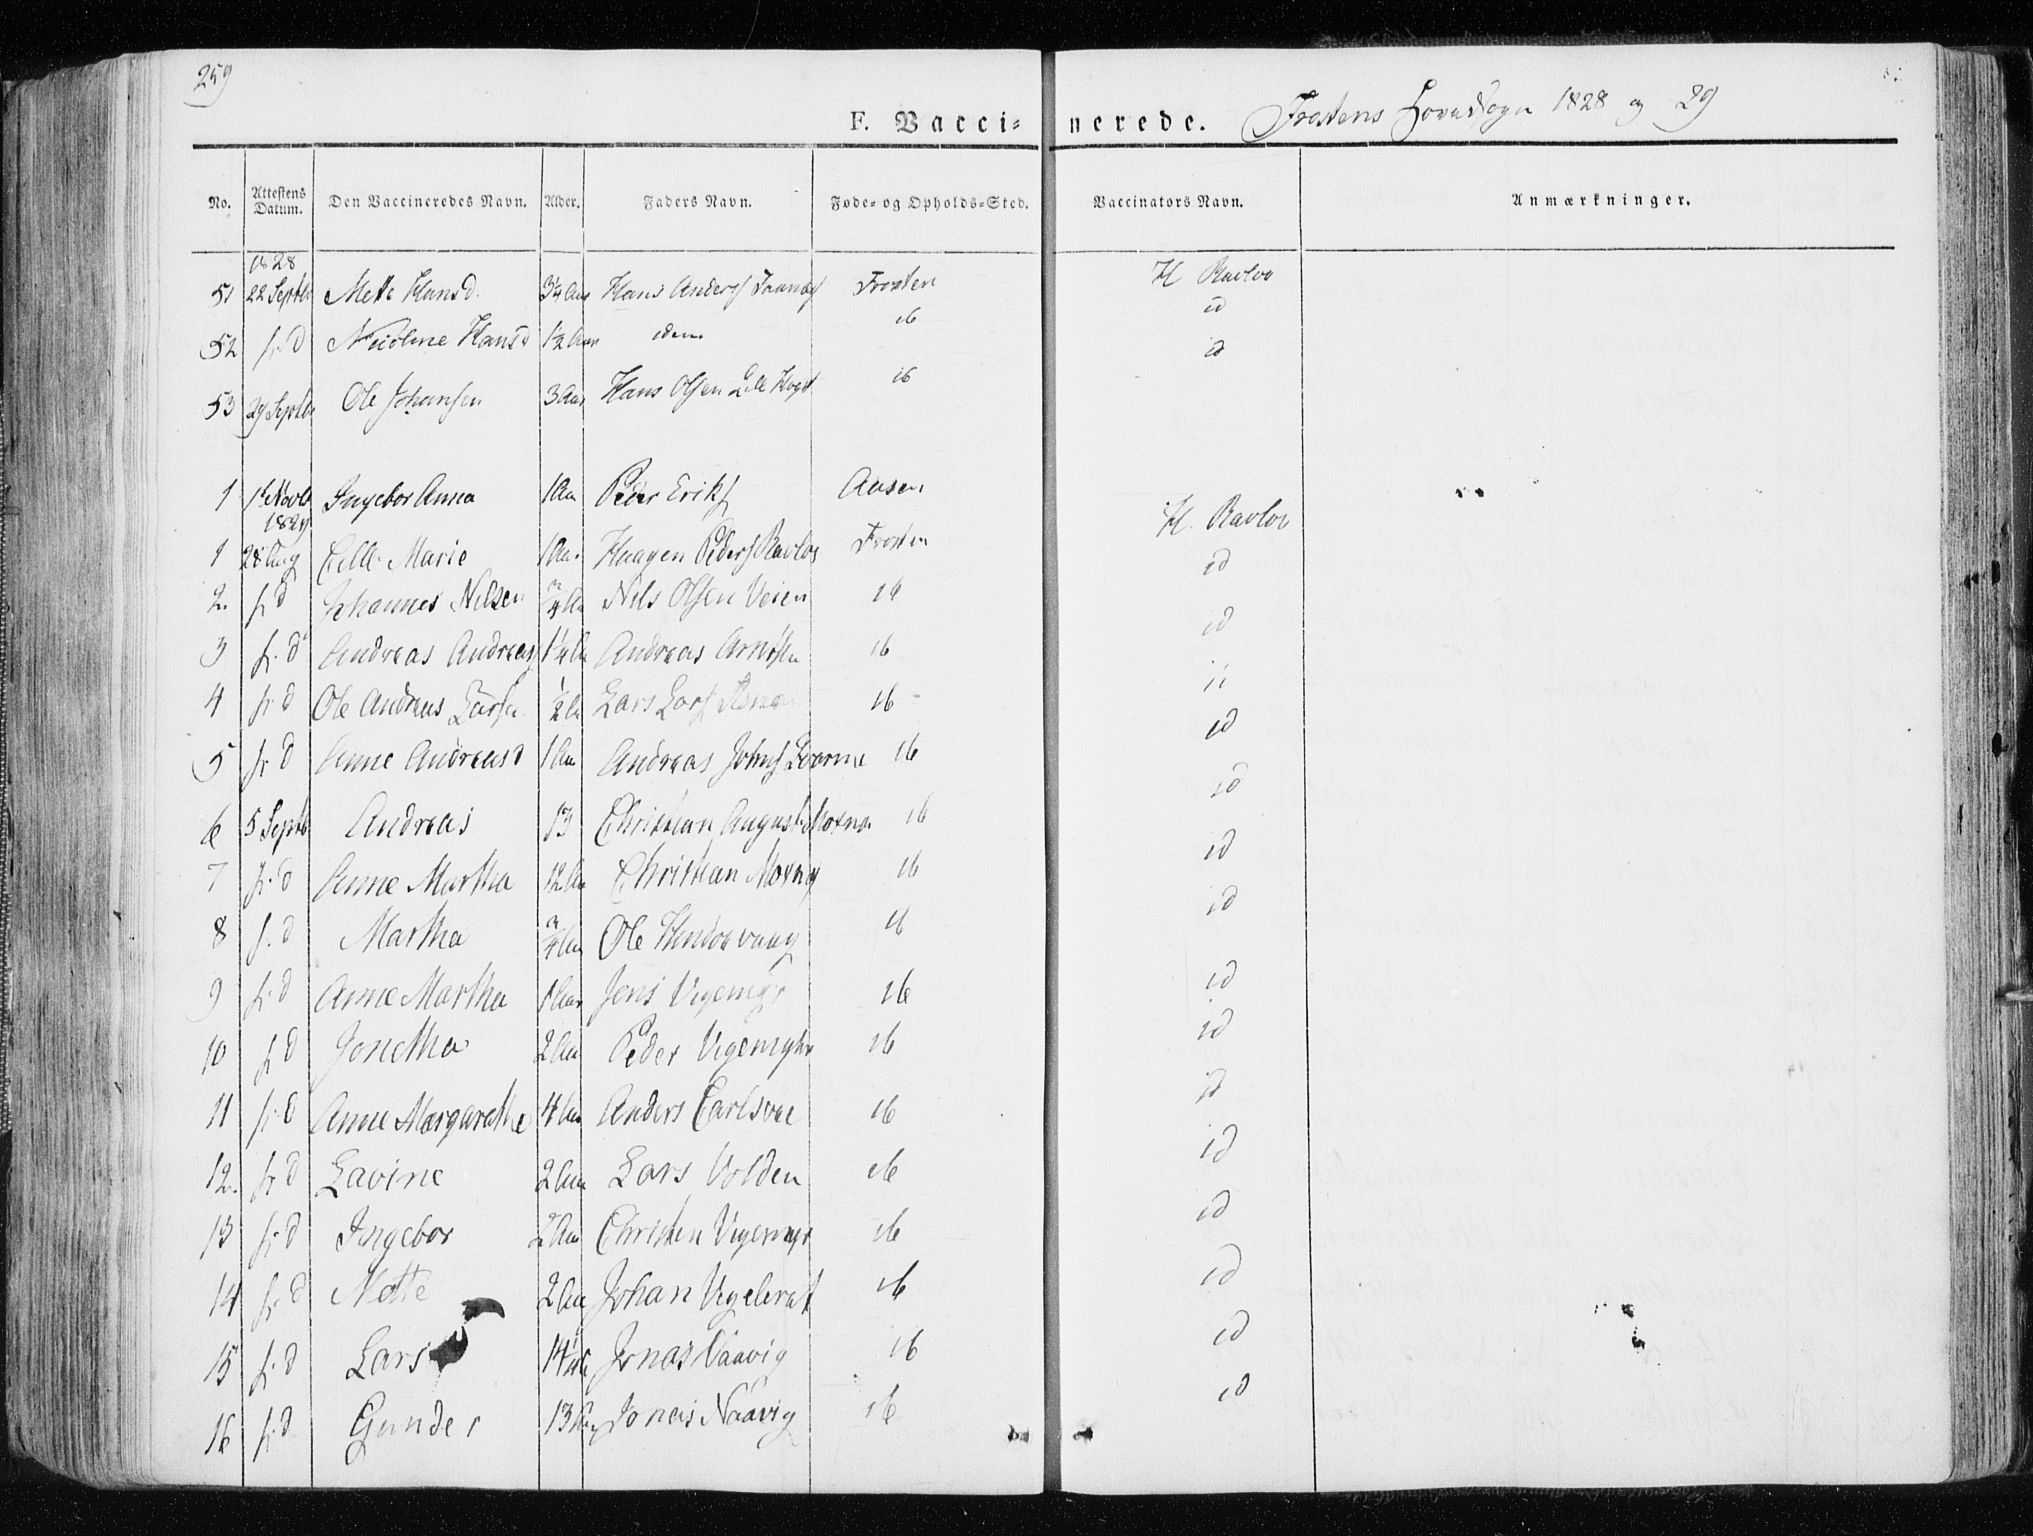 259
F. Vaccinerede. Frostens Hovedsogn 1828 og 29
No. Attestens Datum. Den Vaccineredes Navn. Alder. Faders Navn. Føde- og Opholds-Sted. Vaccinators Navn. Anmærkninger.
1828
51 22 Septbr Mette Hansd. 3¼ Aar Hans Anders Frosten H Ravlos
52 s. d Nicoline Hansd 1½ Aar idem ib id
53 29 Septbr Ole Johansen 3 Aar Hans Olsen Lille ib id
1 1 Novb Ingebor Anna 1 Aar Peder Eriks Aasen
1829
1 28 Aug Elle Marie 1 Aar Haagen Peders Ravlos Frosten H. Ravlos
2. s. d Johannes Nilsen ¾ Aar Nils Olsen Veien ib id
3 s. d Andreas Andreas 1¼ Aar Andreas Arntsen ib id
4 s. d Ole Andreas Larsen ½ Aar Lars Lars ib id
5 s. d Anne Andreasd 1 Aar Andreas Johns ib id
6 5 Septb Andreas 13 Christian August Moxnæs ib id
7 s. d Anne Martha 12 Aar Christian Moxnes ib id
8 s. d Martha ¾ Aar Ole ib id
9 s. d Anne Martha 1 Aar Jens Vigemyr ib id
10 s. d Jonetha 2 Aar Peder Vigemyhr ib id
11 s. d Anne Margarethe 4 Aar Anders ib id
12. s. d Lavine 2 Aar Lars Volden ib id
13 s. d Ingebor 2 Aar Christen Vigemyr ib id
14 s. d Mette 2 Aar Johan ib id
15 s. d Lars 14 Jonas Naavig ib id
16 s. d Gunder 13 Aar Jonas Naavig ib id